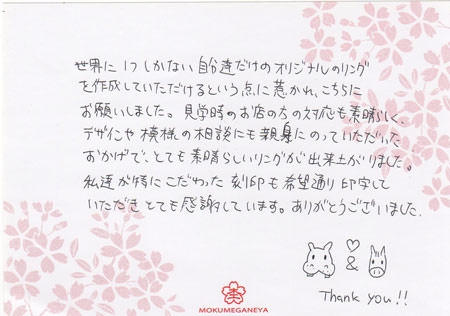 世界に1つしかない自分達だけのオリジナルのリング
を作成していただけるという点に惹かれ、こちらに
お願いしました。見学時のお店の方の対応も素晴らしく、
デザインや模様の相談にも親身にのっていただいた
おかげで、とても素晴らしいリングが出来上がりました。
私達が特にこだわった刻印も希望通り印字して
いただきとても感謝しています。ありがとうございました。
&
Thank you!!
MOKUMEGANEYA